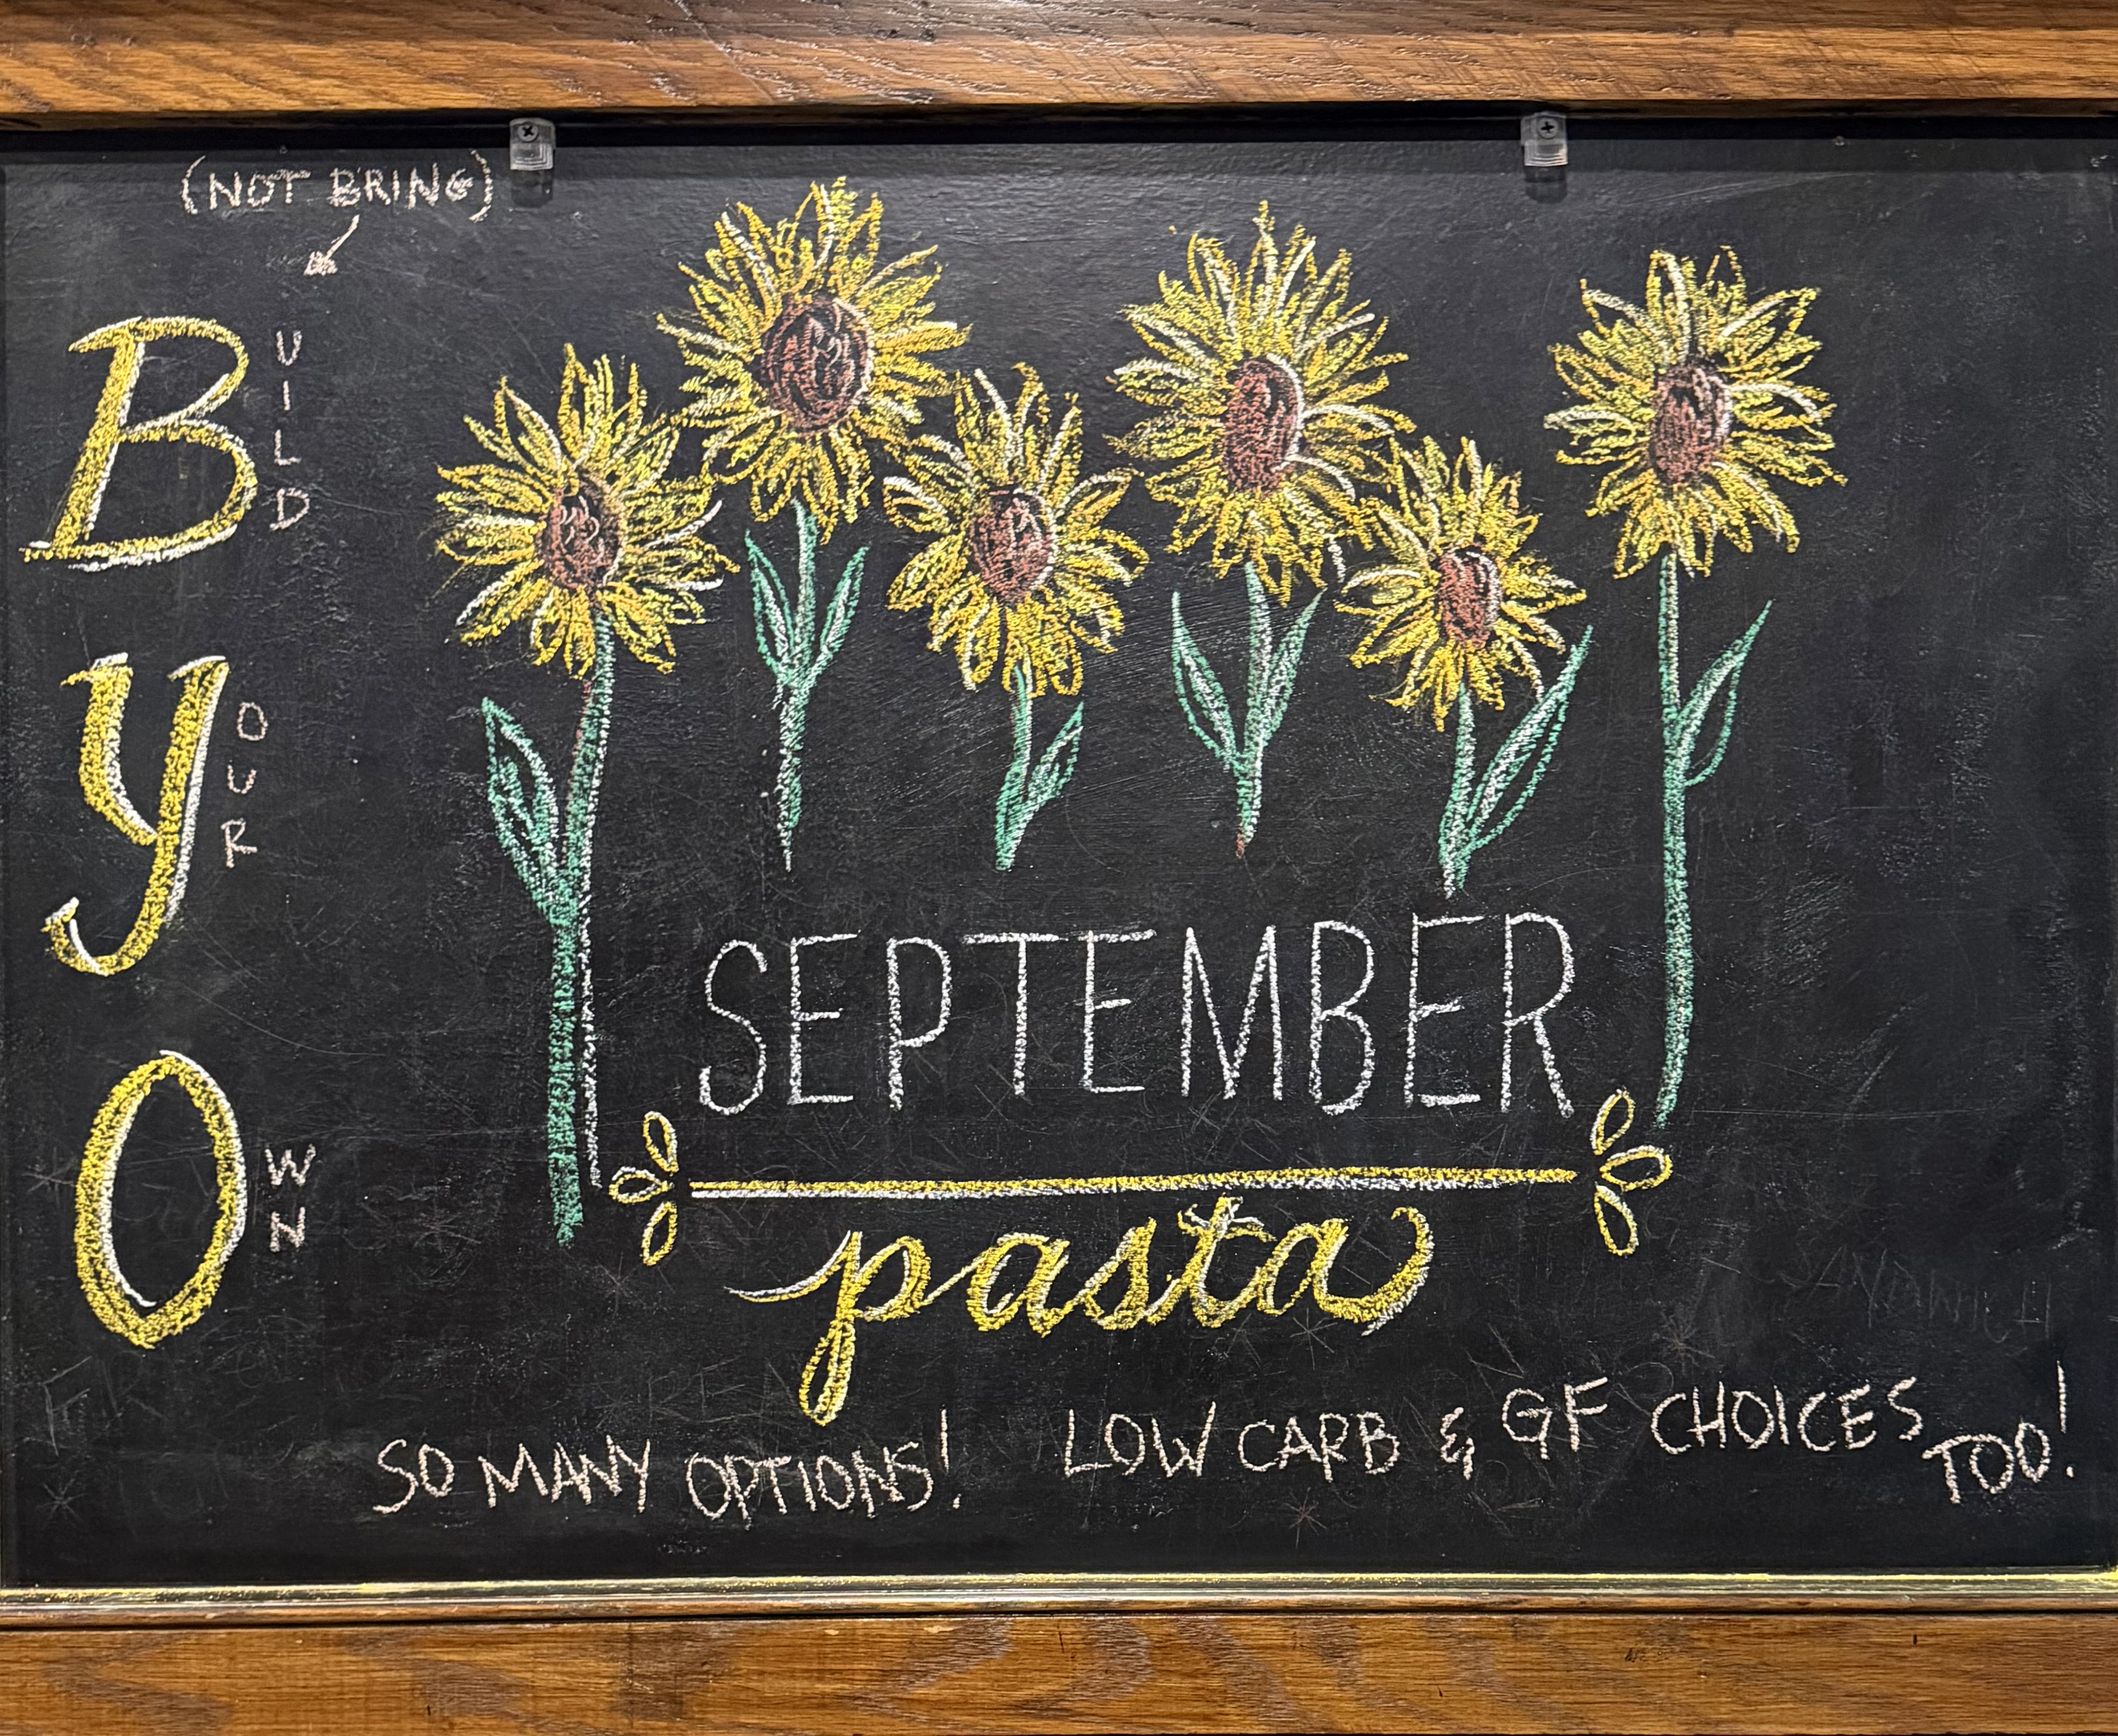 (NOT BRING)
BUILD
YOUR
OWN
SEPTEMBER
pasta
SANDWICH
SO MANY OPTIONS! LOW CARB & GF CHOICES TOO!